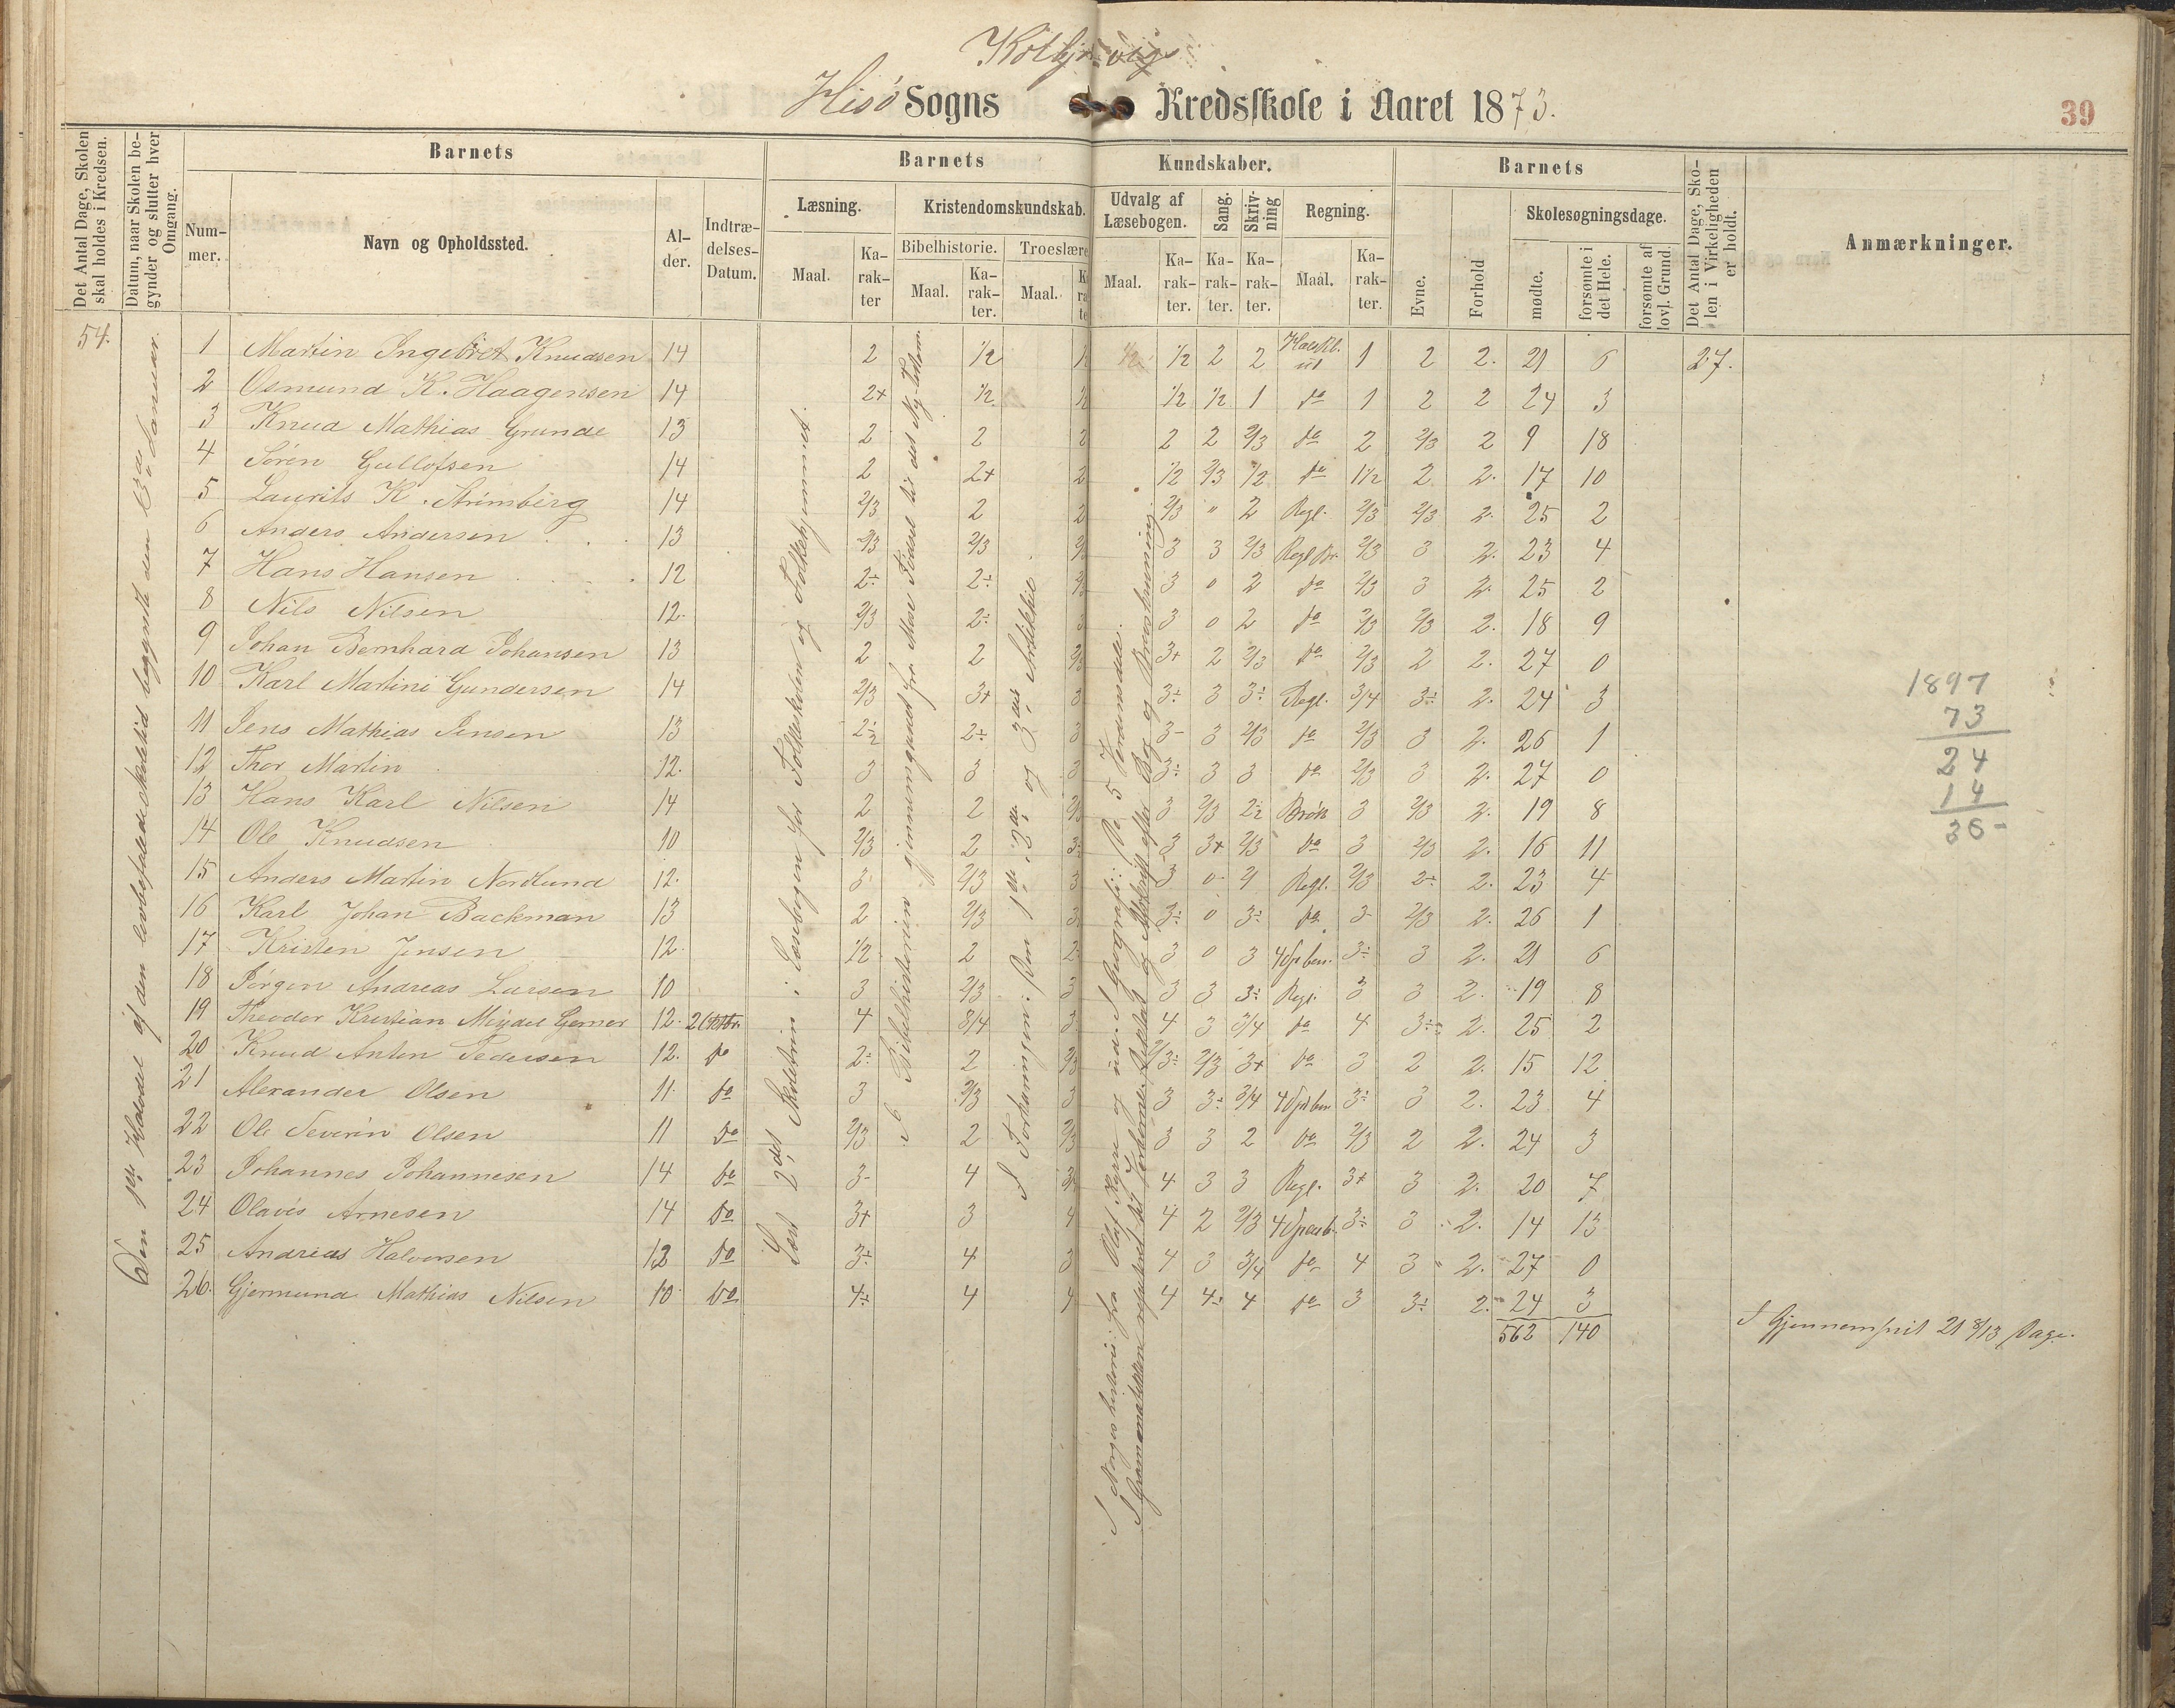 Kolbjrnvigs
Hisö Sogns Kredsskole i Aaret 1873.
39
Det Antal Dage, Skolen skal holdes i Kredsen.
Datum, naar Skolen begynder og slutter hver Omgang.
Barnets
Nummer.
Navn og Opholdssted.
Alder.
Indtrædelses-Datum.
Barnets Kundskaber.
Læsning.
Maal.
Karakter
Kristendomskundskab.
Bibelhistorie.
Maal.
Karakter.
Troeslære
Maal.
Udvalg af Læsebogen.
Maal.
Karakter.
Sang.
Karakter.
Skrivning
Karakter.
Regning.
Maal.
Karakter.
Barnets
Evne.
Forhold
Skolesøgningsdage.
mødte.
forsømte i det Hele.
forsømte af lovl. Grund.
Det Antal Dage, Skolen i Virkeligheden er holdt.
Anmærkninger.
54.
Den 1ste Halvdel af den lovbefalede Skoletid begyndte den 13de Januar
Læst 2det Skoletrin i Læsebogen for Folkeskolen og Folkehjemmet.
I Bibelhistorien gjennemgaaet fra Mose Födsel til det Ny-Testam.
I Forklaringen: Den 1ste, 2den og 3die Artikkel.
I Norges historie fra Olaf Kyrre og ud. I Geografi: De 5 Verdensdele.
1 Martin Ingebret Knudsen 14 2 1/2 1/2 1/2 2 2 1 2 2. 21 6 27.
2 Osmund K. Haagensen 14 2+ 1/2 1/2 1/2 1 do 1 2 2 24 3
3 Knud Mathias Grunde 13 2 2 2 2 2 2/3 do 2 2/3 2 9 18
4 Sören Gullofsen 14 2 2+ 2 1/2 2/3 1/2 do 1 1/2 2 2. 17 10
5 Laurits K. Strömberg 14 2/3 2 2 2/3 " 2 Regl. 2/3 2/3 2. 25 2
6 Anders Andersen 13 2/3 2/3 3 3 2/3 2/3 3 2. 23 4
7 Hans Hansen 12 2÷ 2÷ 3 0 2 do 2/3 3 2. 25 2
8 Nils Nilsen 12. 2/3 2÷ 3 3 0 2 do 2/3 2/3 2. 18 9
9 Johan Bernhard Johansen 13 2 2 2/3 3+ 2 2/3 do 2/3 2 2. 27 0
10 Karl Martini Gundersen 14 2/3 3+ 3 3÷ 3 3÷ Regl. 3/4 3÷ 2. 24 3
11 Jens Mathias Jensen 13 2÷ 3 3- 3 2/3 do 2/3 3 2. 26 1
12 Thor Martin 12. 3 3 3 3÷ 3 3 do 2/3 3 2. 27 0
13 Hans Karl Nilsen 14 2 2 2/3 3 2/3 Brök 3 2/3 2. 19 8
14 Ole Knudsen 10 2/3 2 3÷ 3 3+ 2/3 do 3 2/3 2. 16 11
15 Anders Martin Nordlund 12. 3 2/3 3 3 0 Regl. 2/3 2÷ 2. 23 4
16 Karl Johan Backman 13 2 2/3 3 3÷ 0 3÷ do 3- 2/3 2. 26 1
17 Kristen Jensen 12. 1/2 2 2 3 0 3 3÷ 3 2. 21 6
18 Jörgen Andreas Larsen 10 3 2/3 3 3 3 3÷ Regl. 3 3 2. 19 8
19 Theodor Kristian Gerner 12. 4 3/4 3 4 3 3/4 do 4 3÷ 2. 25 2
20 Knud Anton Pedersen 12. do 2÷ 2 2/3 2/3 3+ do 3 2 2. 15 12
21 Alexander Olsen 11. do 3 2/3 3 3 3÷ 3/4 3÷ 3 2. 23 4
22 Ole Severin Olsen 11 do 2/3 2 2/3 3 3 2 do 2/3 2 2. 24 3
23 Johannes Johannesen 14 do 3- 4 4 3 3 Regl. 3+ 3 2. 20 7
24 Olavis Arnesen 14 do 3+ 3 4 4 2 2/3 3÷ 3 2. 14 13
25 Andreas Halvorsen 12 do 3÷ 4 3 4 3 3/4 do 4 3 2. 27 0
26. Gjermund Mathias Nilsen 10 do 4÷ 4 4 4 4÷ 4 do 3 3÷ 2. 24 3
562 140
I Gjennemsnit 21 8/13 Dage.
1897
73
24
14
36-